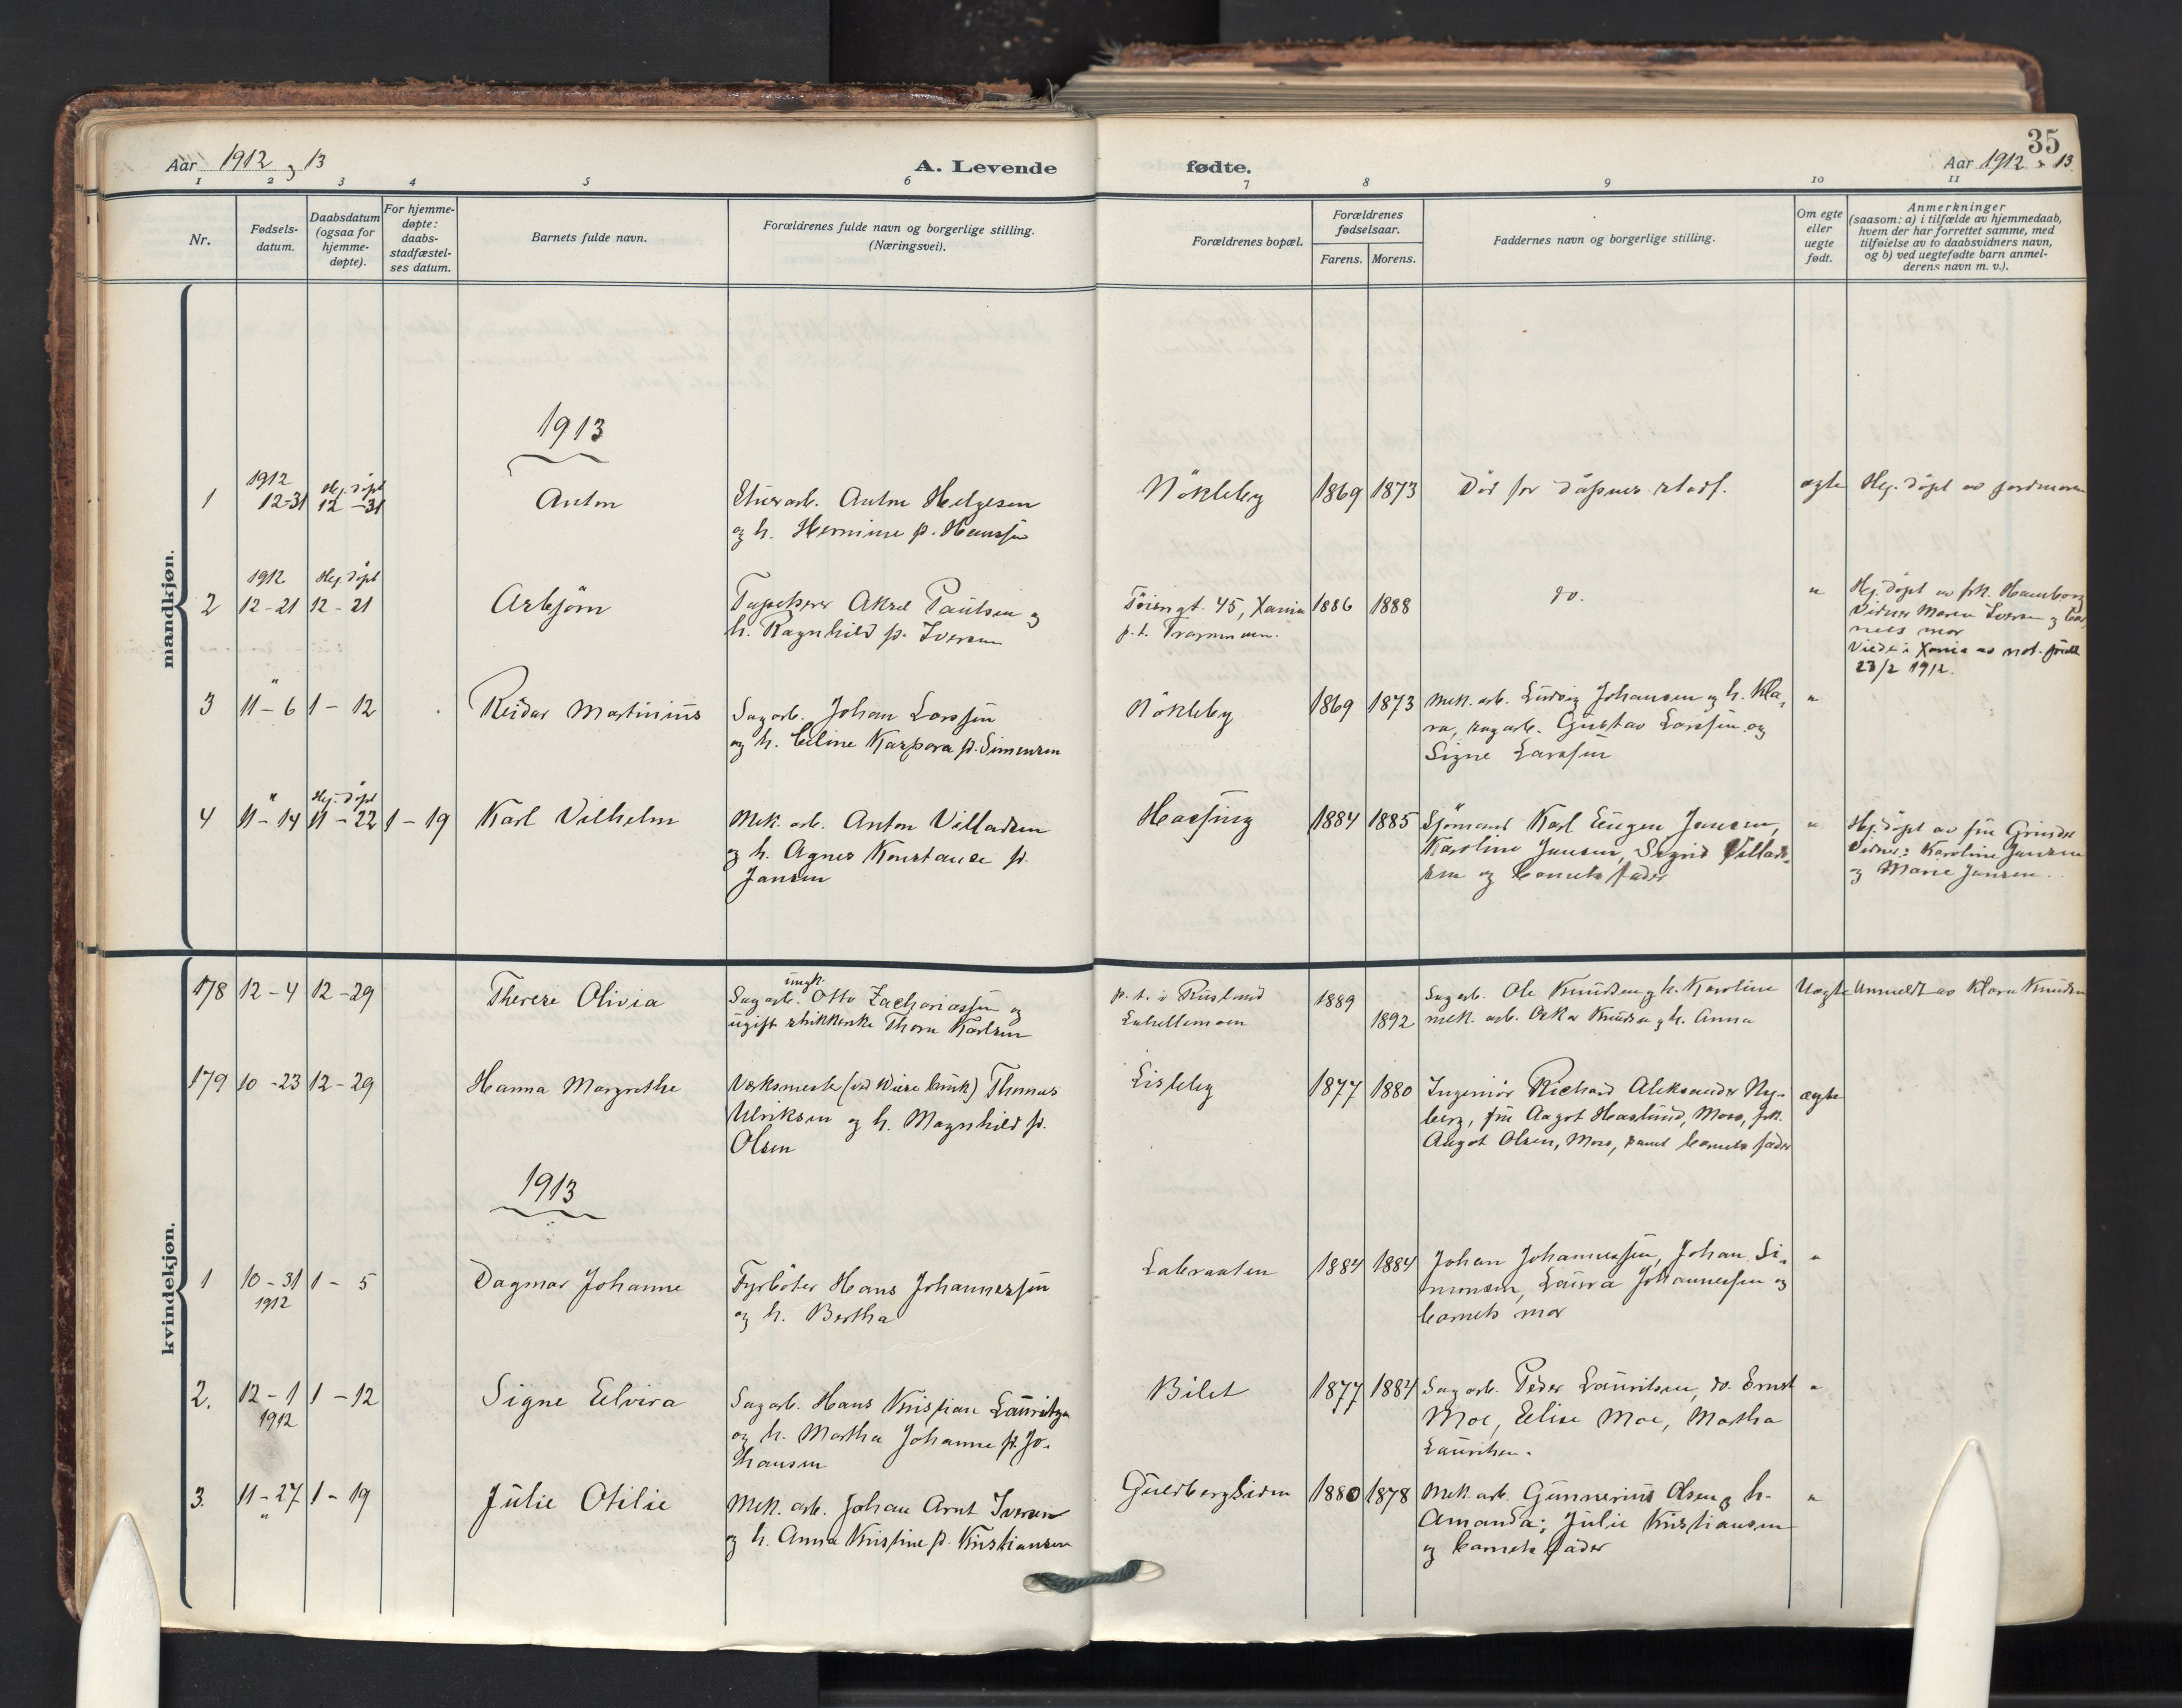 35
Aar 1912 og 13
A. Levende fødte.
Aar 1912 & 13.
1 2 3 4 5 6 7 8 9 10 11
Nr.
Fødsels-
datum.
Daabsdatum
(ogsaa for
hjemme-
døpte).
For hjemme-
døpte:
daabs-
stadfæstel-
ses datum.
Barnets fulde navn.
Forældrenes fulde navn og borgerlige stilling.
(Næringsvei).
Forældrenes bopæl.
Forældrenes
fødselsaar.
Farens. Morens.
Faddernes navn og borgerlige stilling.
Om egte
eller
uegte
født.
Anmerkninger
(saasom: a) i tilfælde av hjemmedaab,
hvem der har forrettet samme, med
tilføielse av to daabsvidners navn,
og b) ved uegtefødte barn anmel-
derens navn m. v.).
mandkjøn.
1913
1
1912
12-31
Hj. døpt
12-31
Anton
Anton Helgesen
og h. Hermine f. Hanssen
Nökleby
1869 1873
Död for dåpens stadf.
ægte
Hj. døpt av jordmoren
2
1912
12-21
Hj. døpt
12-21
Asbjörn
Tapetserer Aksel Paulsen og
h. Ragnhild f. Iversen
Töiengt. 45, Xania
p. t.
1886 1888
do.
"
Hj. døpt av frk. Hamborg
Vidner Maren Iversen og bar-
nets mor
Viede i Xania av not. publ.
23/2 1912.
3
"
11-6
1-12
Reidar Martinius
Sagarb. Johan Larssen
og h. Eline Karpora f. Simensen
Nökleby
1869 1873
Mek. arb. Ludvig Johansen og h. Kla-
ra, sagarb. Gustav Larssen og
Signe Larssen
"
4
"
11-14
Hj. døpt
11-22
1-19
Karl Vilhelm
Mek. arb. Anton Villadsen
og h. Agnes Konstanse f.
Jansen
Hassing
1884 1885
Sjömand Karl Eugen Jansen,
Karoline Jansen, Sigrid Villad-
sen og barnets fader
"
Hj. døpt av fru Grinder
Vidner: Karoline Jansen
og Marie Jansen.
kvindekjøn.
178
12-4
12-29
Therese Olivia
ungk.
Sagarb. Otto Zachariassen og
ugift strikkerske Thora Karlsen
p. t. i Riislund
Lahellemoen
1889
1892
Sagarb. Ole Knudsen og h. Karoline
mek. arb. Oskar Knudsen og h. Anna
Uægte
Anmeldt av Klara Knudsen
179
10-23
12-29
Hanna Margrethe
Verksmester (ved Wiese bruk) Thomas
Ulriksen og h. Magnhild f.
Olsen
Lisleby
1877 1880
Ingeniör Richard Aleksander Ny-
berg, fru Aagot Haslund, Moss, frk.
Aagot Olsen, Moss, samt barnets fader
ægte
1913
1
10-31
1912
1-5
Dagmar Johanne
Fyrböter Hans Johannessen
og h. Bertha
Labraaten
1884 1884
Johan Johannessen, Johan Si-
monsen, Laura Johannessen og
barnets mor
"
2.
12-1
1912
1-12
Signe Elvira
Sagarb. Hans Kristian Lauritzen
og h. Martha Johanne f. Jo-
hansen
Bilet
1877 1884
Sagarb. Peder Lauritsen, do. Ernst
Moe, Elise Moe, Martha
Lauritsen.
"
3.
11-27
"
1-19
Julie Otilie
Mek. arb. Johan Arnt Iversen
og h. Anna Kristine f. Kristiansen
Guldbergsiden
1880 1878
Mek. arb. Gunnerius Olsen og h.
Amanda; Julie Kristiansen
og barnets fader
"